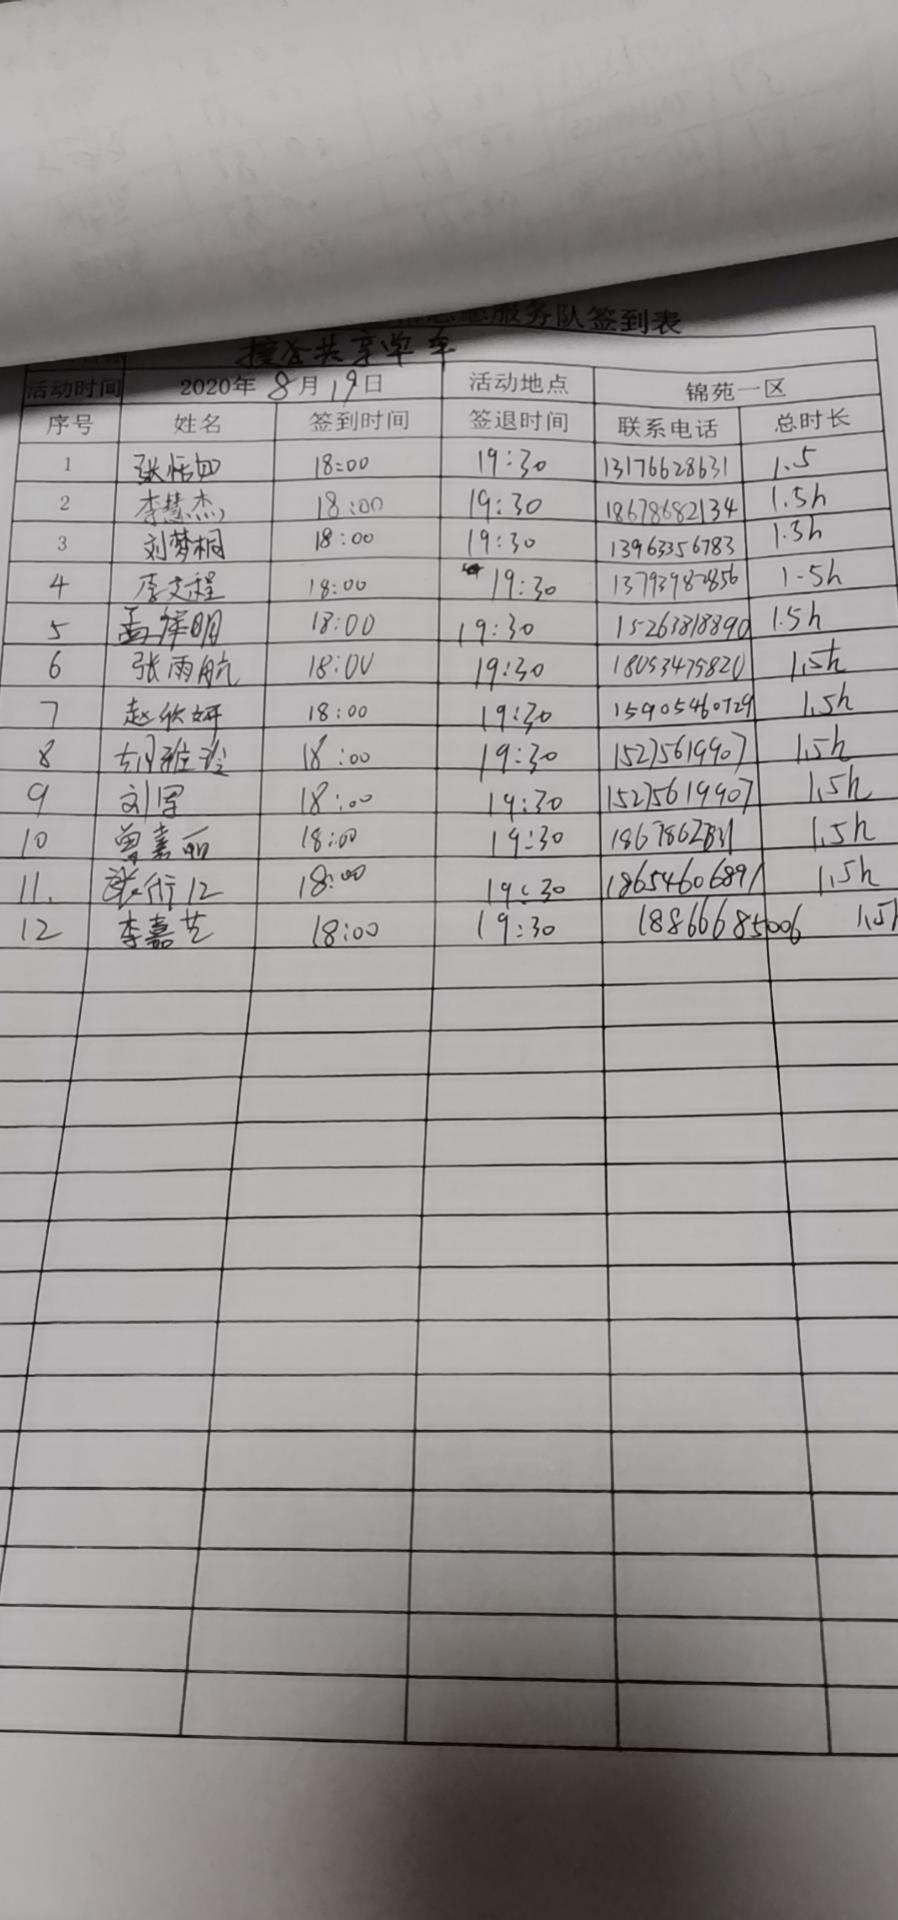 服务队签到表
共享单车
活动时间 2020年8月19日 活动地点 锦苑一区
序号 姓名 签到时间 签退时间 联系电话 总时长
1 张恬如 18:00 19:30 13176628631 1.5
2 李慧杰 18:00 19:30 18678682134 1.5h
3 刘梦桐 18:00 19:30 13963356783 1.5h
4 李文程 18:00 19:30 13793982856 1.5h
5 孟祥明 18:00 19:30 15263818890 1.5h
6 张雨航 18:00 19:30 18053475820 1.5h
7 赵欣妍 18:00 19:30 15905460729 1.5h
8 胡雅 18:00 19:30 15275619907 1.5h
9 刘 18:00 19:30 15275619907 1.5h
10 曾嘉 18:00 19:30 1.5h
11. 张 18:00 19:30 18654606891 1.5h
12 李嘉艺 18:00 19:30 18866685006 1.5h